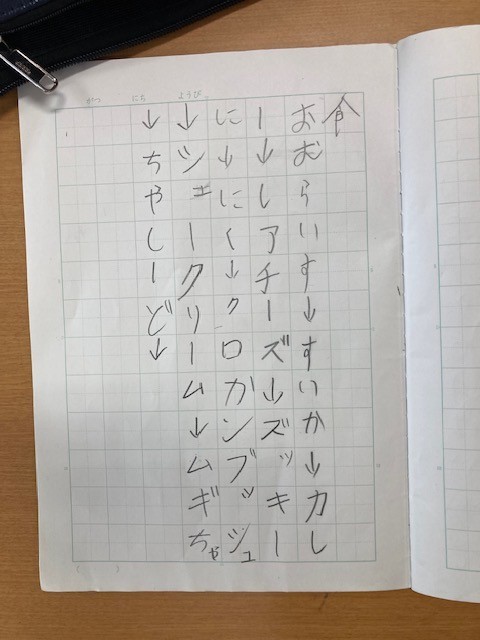 がつ　にち　ようび
食
おむらいす↓すいか↓カし
ー↓しアチーズ↓ズッキー
に↓にく↓クロカンブッシュ
↓シェークリーム↓ムギちゃ
↓ちやしーど↓